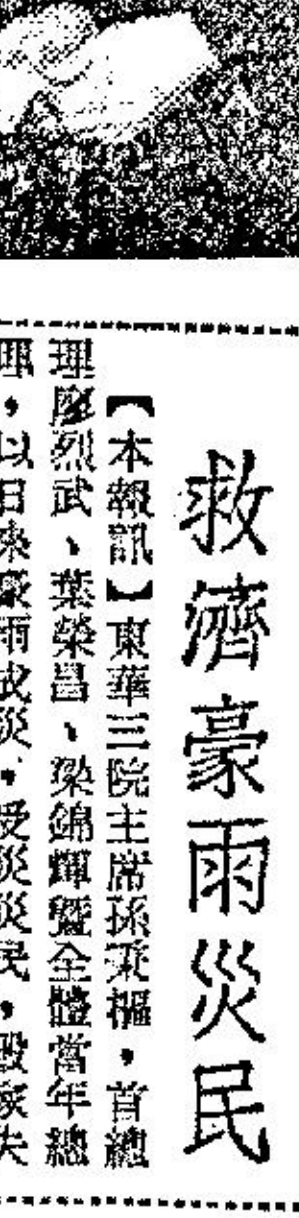 救濟豪雨災民
【本報訊】東華三院主席孫秉樞，首總
理廖烈武、葉榮昌、梁錦輝暨全體當年總
理，以日來豪雨成災，受災災民，毀家失